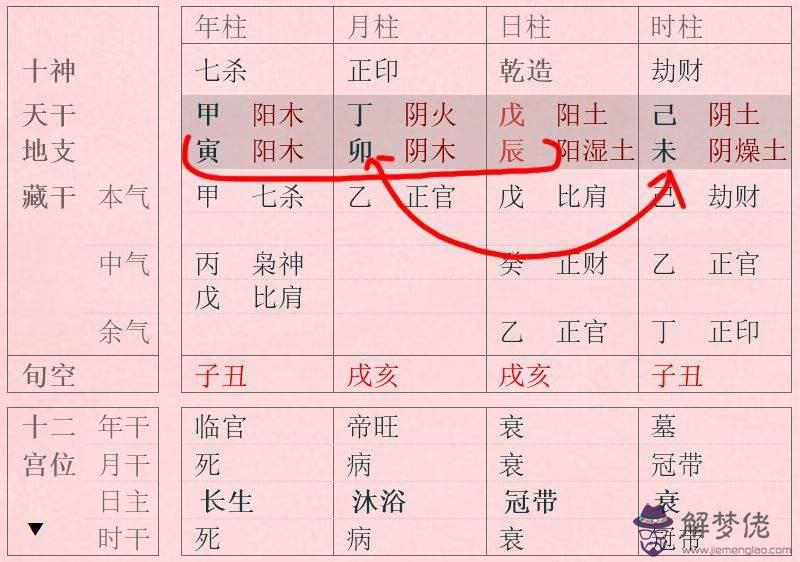 年柱 月柱 日柱 时柱
十神 七杀 正印 乾造 劫财
天干 甲 阳木 丁 阴火 戊 阳土 己 阴土
地支 寅 阳木 卯 阴木 辰 阳湿土 未 阴燥土
藏干 本气 甲 七杀 乙 正官 戊 比肩 己 劫财
中气 丙 枭神 癸 正财 乙 正官
戊 比肩
余气 乙 正官 丁 正印
旬空 子丑 戌亥 戌亥 子丑
十二 年干 临官 帝旺 衰 墓
宫位 月干 死 病 衰 冠带
日主 长生 沐浴 冠带 衰
时干 死 病 衰 冠带
解梦佬
www.jiemenglao.com